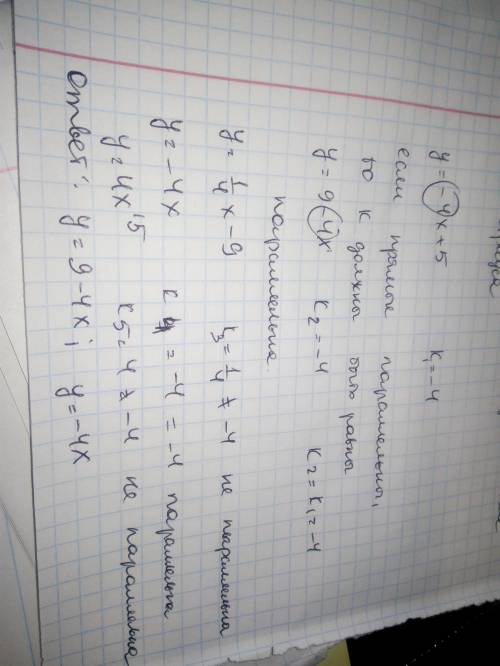 y = -4x + 5 k₁ = -4
если прямые параллельны,
то к должны быть равны
y = 9 - 4x k₂ = -4 k₂ = k₁ = -4
параллельна
y = 1/4 x - 9 k₃ = 1/4 ≠ -4 не параллельна
y = -4x k₄ = -4 = -4 параллельна
y = 4x + 5 k₅ = 4 ≠ -4 не параллельна
Ответ: y = 9 - 4x; y = -4x